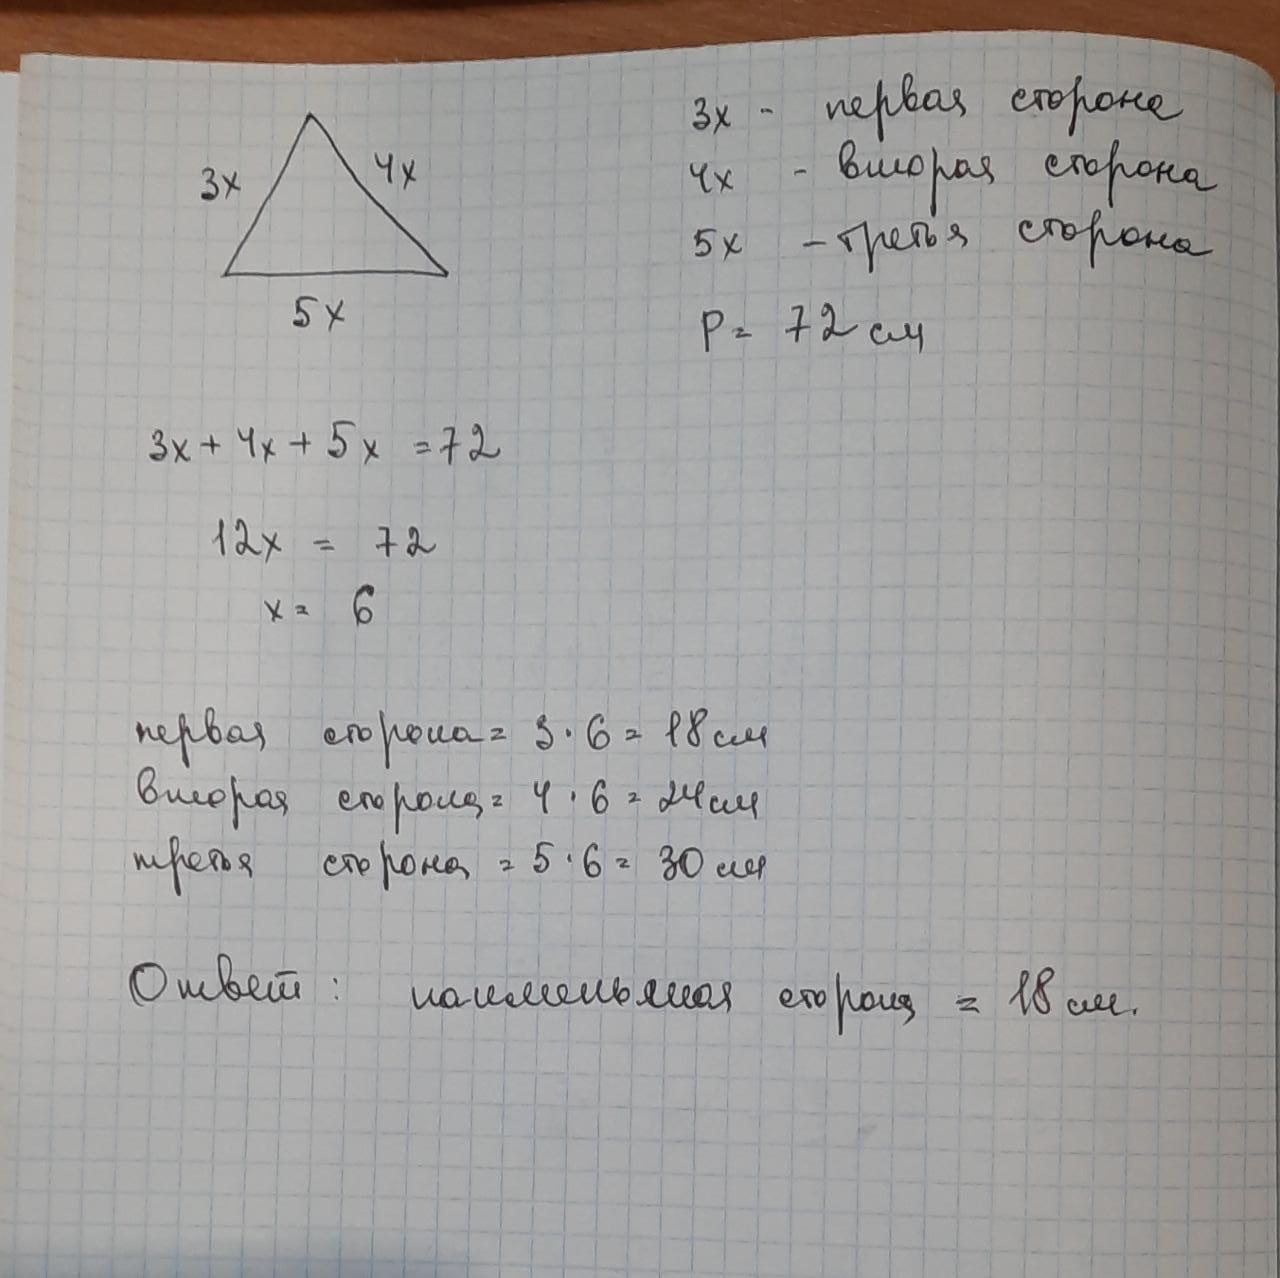 3x
4x
5x
3x - первая сторона
4x - вторая сторона
5x - третья сторона
P = 72 см
3x + 4x + 5x = 72
12x = 72
x = 6
первая сторона = 3 · 6 = 18 см
вторая сторона = 4 · 6 = 24 см
третья сторона = 5 · 6 = 30 см
Ответ: наименьшая сторона = 18 см.